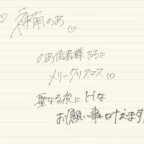 ♡ 神南のあ ♡
のあ信者様たちに
メリークリスマス♡
聖なる夜にHな
お願い事叶えます♡